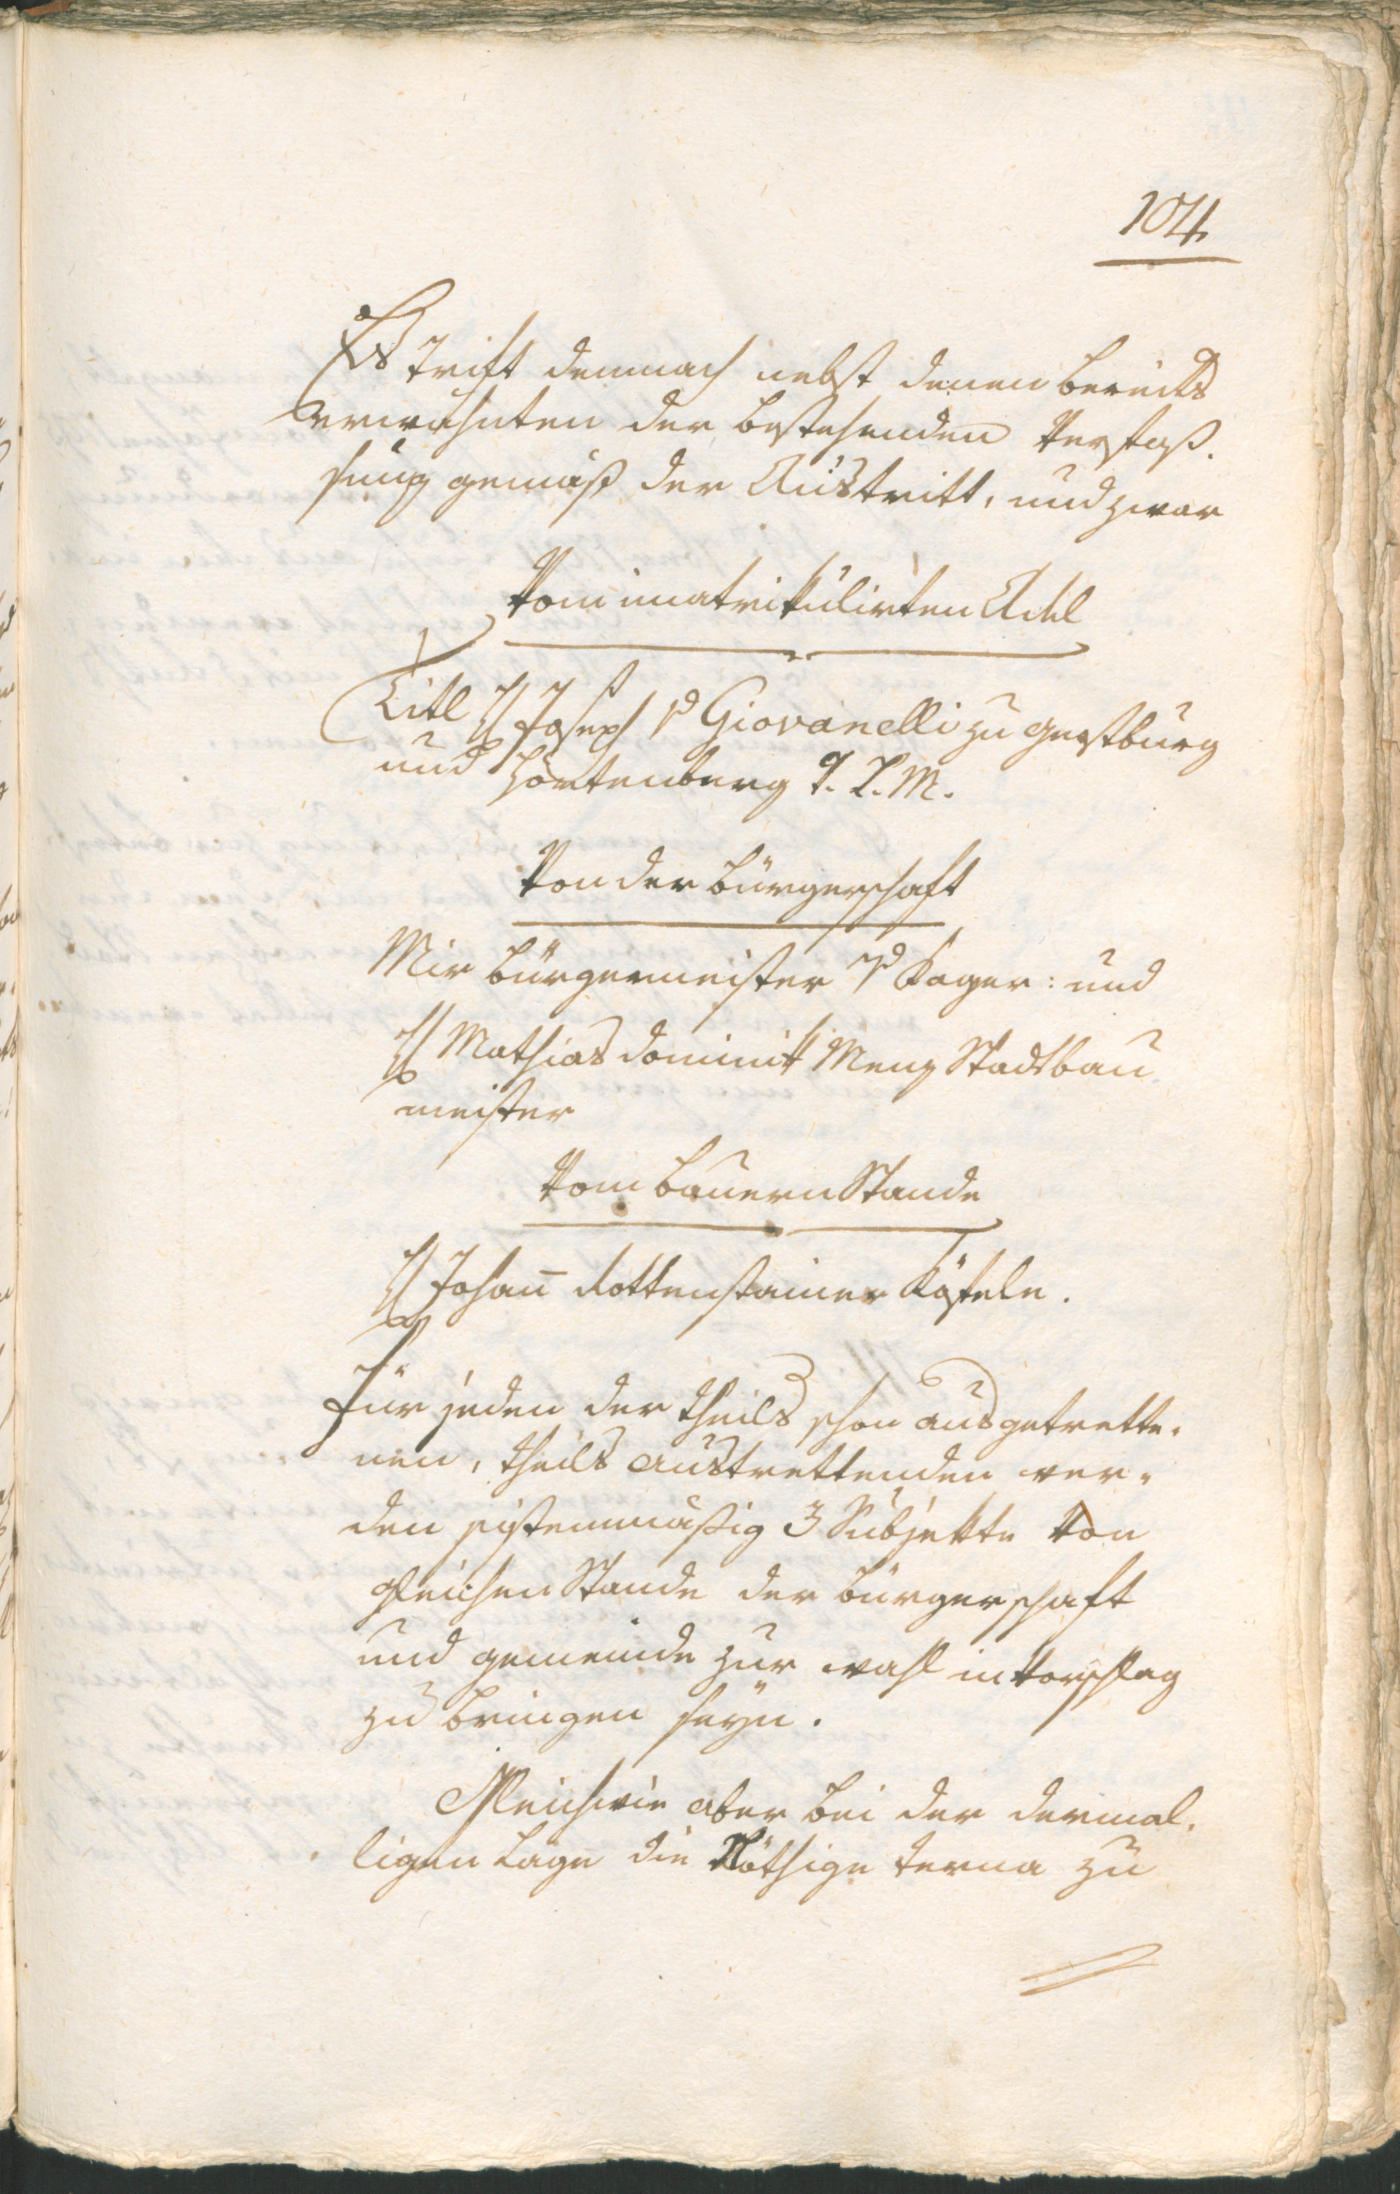 104.
Es trift demnach nebst denen bereits
erwähnten der bestehenden Verfaß.
sung gemäß der Austritt, und zwar
Vom imatrikulirten Adel
Titl H Joseph v Giovanelli zu Gerstburg
und Hörtenberg T. L. M.
Von der Bürgerschaft
Mir Bürgermeister v Kager: und
H Mathias Dominik Menz Stadtbau
meister
Vom Bauern Stande
H Johan̄ Rottenstainer Köstele.
Für jeden der theils schon ausgetrette.
nen, theils austrettenden wer-
den sistemmäßig 3 Subjekte von
gleichen Stande der Bürgerschaft
und Gemeinde zur wahl in Vorschlag
zu bringen seyn.
Gleichwie aber bei der dermal.
ligen Lage die Nöthige terna zu